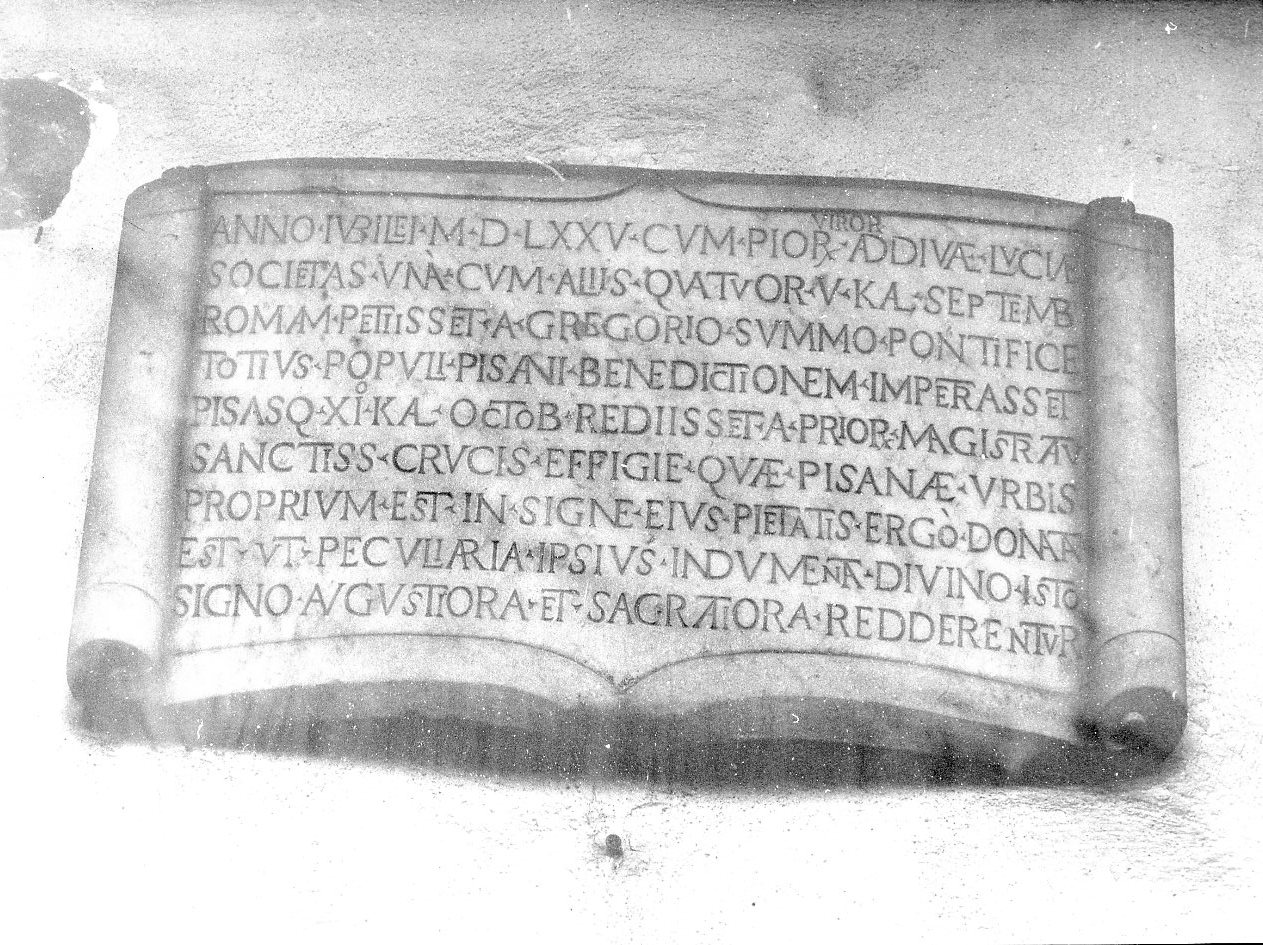 VIROR
ANNO·IVBILEI·M·D·LXXV·CVM·PIOR·AD DIVÆ·LVCIÆ
SOCIETAS·VNÀ·CVM·ALIIS·QVATVOR·V·KAL·SEPTEMB
ROMAM·PETIISSET·A·GREGORIO·SVMMO·PONTIFICE
TOTIVS·POPVLI·PISANI·BENEDICTIONEM·IMPETRASSET
PISASQ·XI·KAL·OCTOB·REDIISSET·A·PRIOR·MAGISTRATV
SANCTISS·CRVCIS·EFFIGIE·QVÆ·PISANÆ·VRBIS
PROPRIVM·EST·INSIGNE·EIVS·PIETATIS·ERGÒ·DONATA
EST·VT·PECVLIARIA·IPSIVS·INDVMENTA·DIVINO·ISTO
SIGNO·AVGVSTIORA·ET·SAGRATIORA·REDDERENTVR